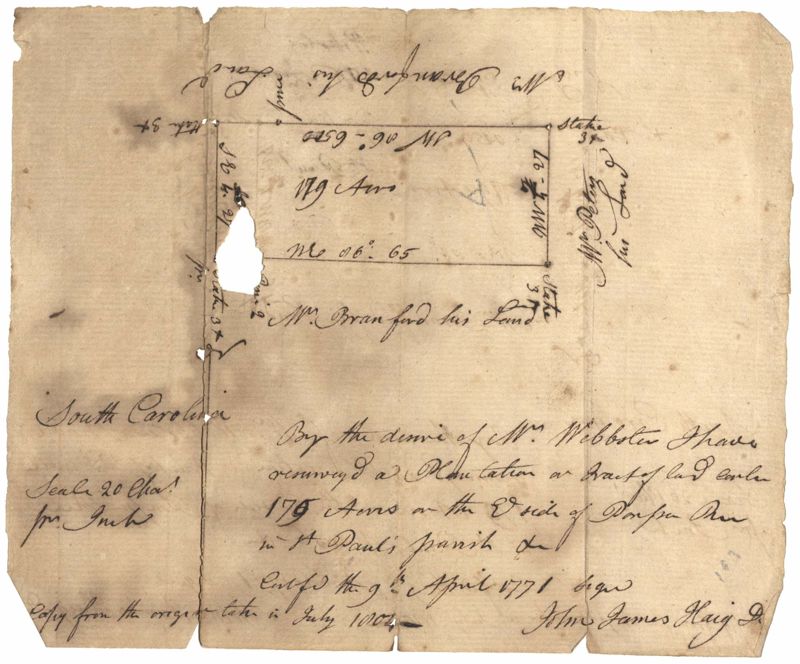 Mr Branford his Land
pine
Stake 3x
Stake
3x
SW 86°- 65
179 Acres
Mr Peters
his Land
NE 86°- 65
Stake
3x
Stake 3x
Mr. Branford his Land
South Carolina
Scale 20 Chas.
pr. Inch
By the desire of Mr. Webbster I have
resurvey'd a Plantation or tract of land
179 Acres on the Et side of Ponpon River
in St Paul's parish &c
Certifd the 9th April 1771 Sign
John James Haig D.
Copy from the original taken in July 1804
163